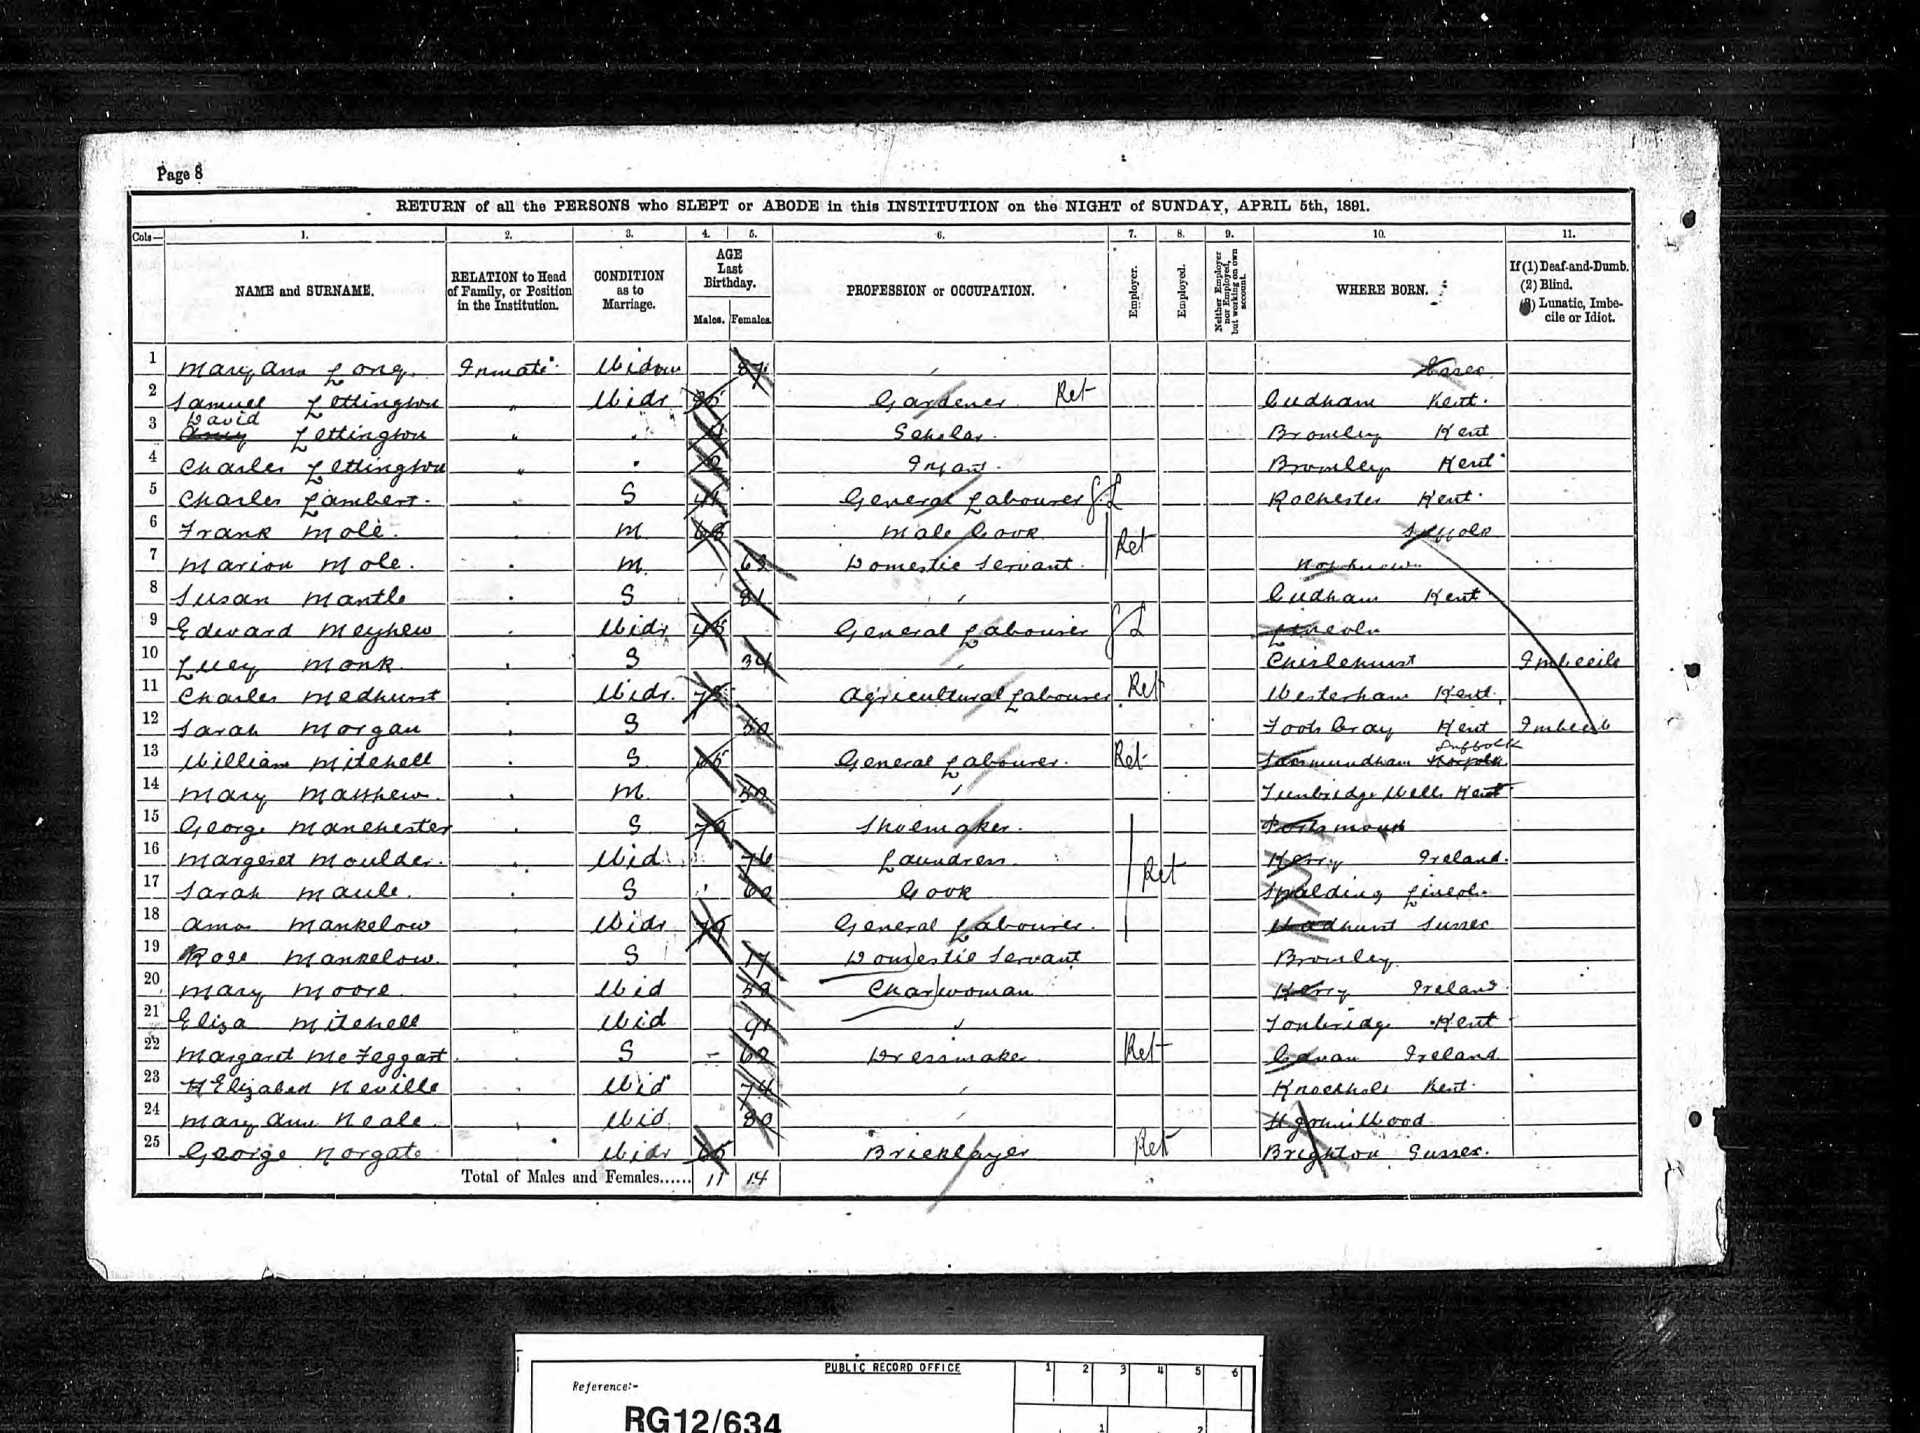 Page 8
RETURN of all the PERSONS who SLEPT or ABODE in this INSTITUTION on the NIGHT of SUNDAY, APRIL 5th, 1891.
Cols— 1. 2. 3. 4. 5. 6. 7. 8. 9. 10. 11.
NAME and SURNAME. RELATION to Head of Family, or Position in the Institution. CONDITION as to Marriage. AGE Last Birthday. Males. Females. PROFESSION or OCCUPATION. Employer. Employed. Neither Employer nor Employed, but working on own account. WHERE BORN. If (1) Deaf-and-Dumb. (2) Blind. (3) Lunatic, Imbecile or Idiot.
1 Mary Ann Long Inmate Widow 87 Essex
2 Samuel Lettington " Widr Gardener Ret Cudham Kent
David
3 Lettington " Scholar Bromley Kent
4 Charles Lettington " Infant Bromley Kent
5 Charles Lambert S General Labourer GL Rochester Kent
6 Frank Mole M 68 Male Cook Ret Suffolk
7 Marion Mole M 63 Domestic Servant Not known
8 Susan Mantle S 81 Cudham Kent
9 Edward Meyhew Widr General Labourer GL Lincoln
10 Lucy Monk S 34 Chislehurst Imbecile
11 Charles Medhurst Widr Agricultural Labourer Ret Westerham Kent
12 Sarah Morgan S 50 Foots Cray Kent Imbecile
Suffolk
13 William Mitchell S 65 General Labourer Ret Saxmundham Norfolk
14 Mary Matthew M 50 Tunbridge Wells Kent
15 George Manchester S Shoemaker Portsmouth
16 Margeret Moulder Wid 76 Laundress Ret Kerry Ireland
17 Sarah Maule S 60 Cook Spalding Lincoln
18 Amos Mankelow Widr 79 General Labourer Wadhurst Sussex
19 Rose Mankelow S 17 Domestic Servant Bromley
20 Mary Moore Wid Charwoman Kerry Ireland
21 Eliza Mitchell Wid 91 Tonbridge Kent
22 Margaret McTeggart S Dressmaker Ret Cavan Ireland
23 Elizabeth Neville Wid 74 Knockholt Kent
24 Mary Ann Neale Wid 80
25 George Norgate Widr 65 Bricklayer Ret Brighton Sussex
Total of Males and Females...... 11 14
PUBLIC RECORD OFFICE 1 2 3 4 5 6
Reference:-
RG12/634 1 2